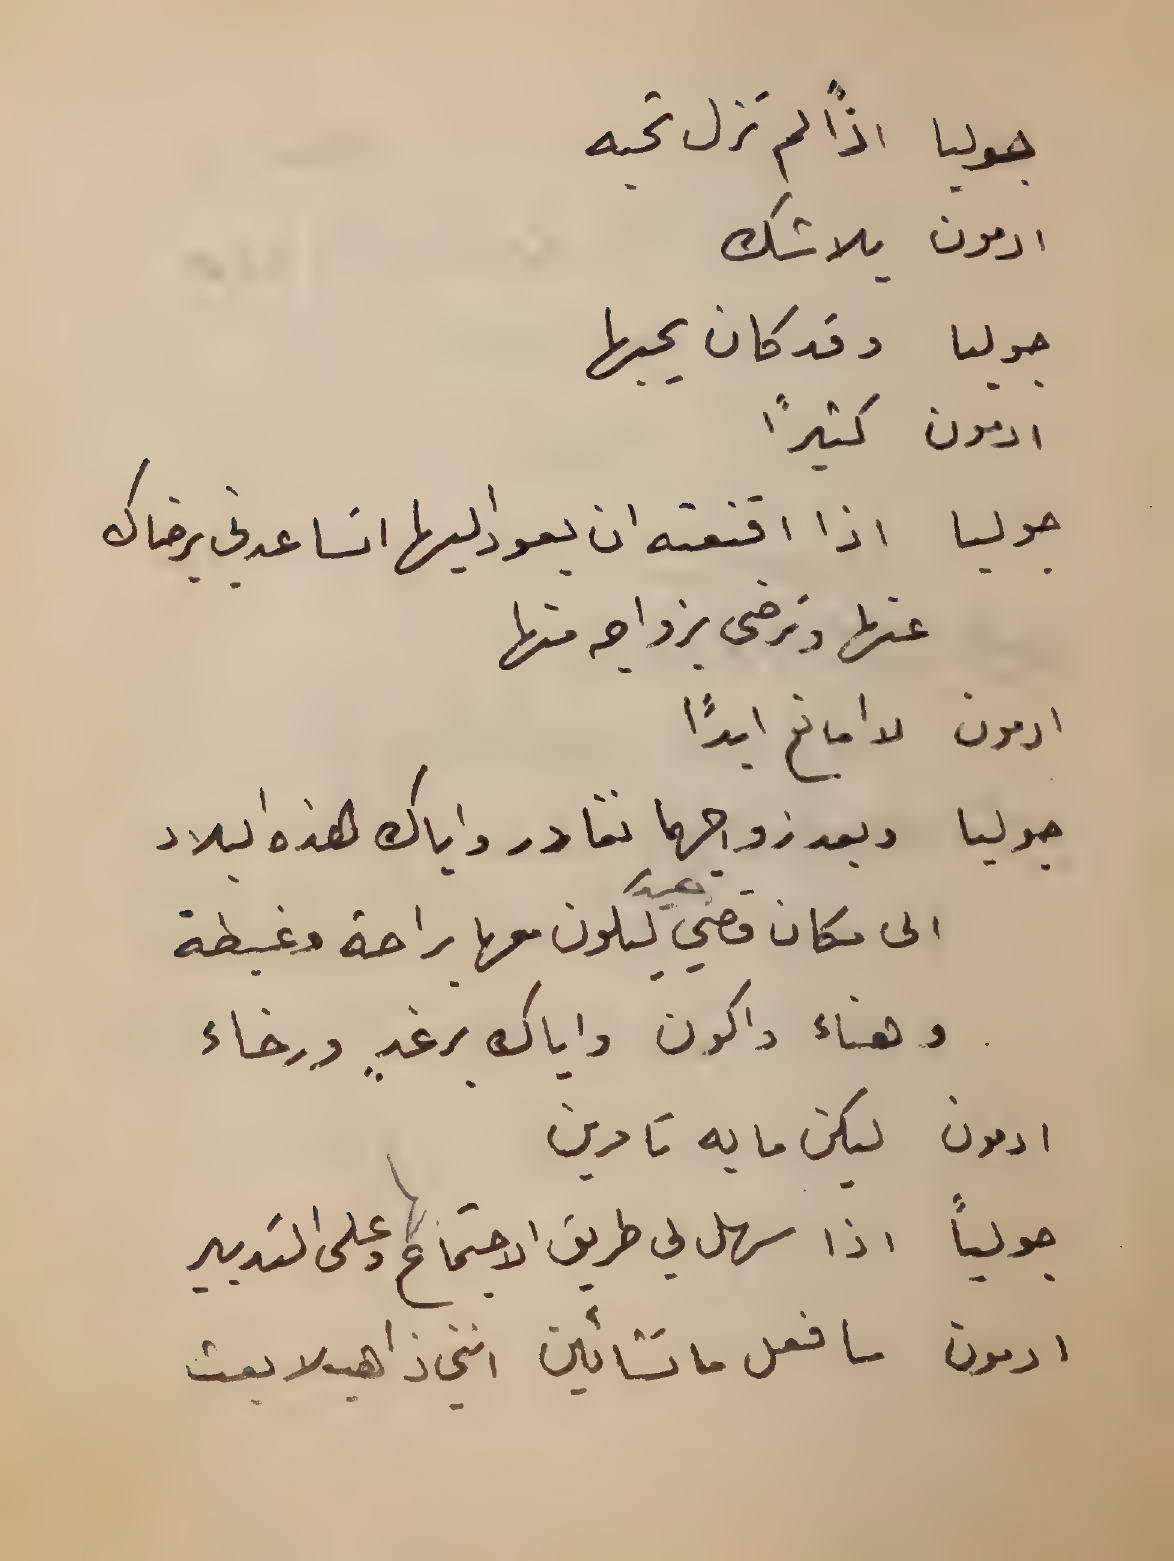 جوليا اذًا لم تزل تحبه
ادمون بلا شك
جوليا وقد كان يحبها
ادمون كثيرًا
جوليا اذا اقنعته ان يعود اليها اتساعدني برضاك
عنها وترضى بزواجه منها
ادمون لا امانع ابدًا
جوليا وبعد زواجهما نغادر واياك هذه البلاد
بعيد
الى مكان قصي ليكون معها براحة وغبطة
وهناء واكون واياك برغدٍ ورخاء
ادمون ليكن ما به تامرين
جولياً اذا سهل لي طريق الاجتماع بها وعلى التدبير
ادمون سافعل ما تشائين انني ذاهب لابعث